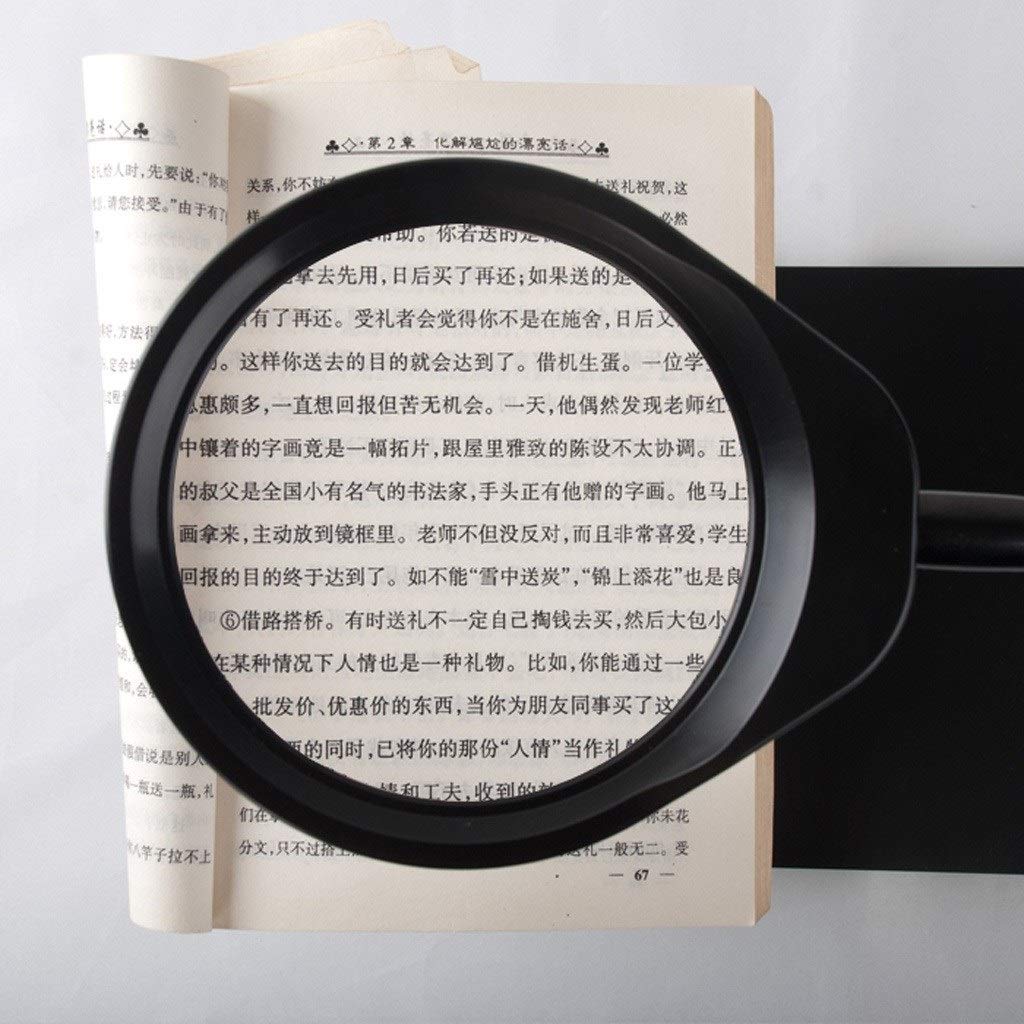 第2章 化解尴尬的漂亮话
关系,你不妨
送礼祝贺,这
样
必然
帮助。你若送的是
拿去先用,日后买了再还;如果送的是
有了再还。受礼者会觉得你不是在施舍,日后又
。这样你送去的目的就会达到了。借机生蛋。一位学
惠颇多,一直想回报但苦无机会。一天,他偶然发现老师红
中镶着的字画竟是一幅拓片,跟屋里雅致的陈设不太协调。正
的叔父是全国小有名气的书法家,手头正有他赠的字画。他马上
画拿来,主动放到镜框里。老师不但没反对,而且非常喜爱,学生
回报的目的终于达到了。如不能“雪中送炭”,“锦上添花”也是良
⑥借路搭桥。有时送礼不一定自己掏钱去买,然后大包小
在某种情况下人情也是一种礼物。比如,你能通过一些
批发价、优惠价的东西,当你为朋友同事买了这
的同时,已将你的那份“人情”当作礼物
情和工夫,收到的
们在
你未花
分文,只不过搭
送礼一般无二。受
— 67 —
话
礼给人时,先要说:“你
请您接受。”由于有了
好,方法得
定会
,会
借说是别人
一瓶送一瓶,礼
八竿子拉不上